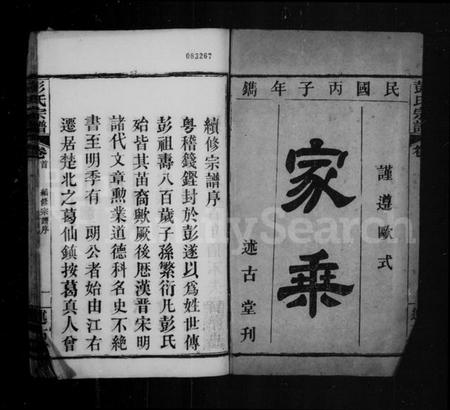 民國丙子年鐫
謹遵歐式
家乘
述古堂刊
彭氏宗譜
083267
續修宗譜序
粵稽錢鏗封於彭遂以為姓世傳
彭祖壽八百歲子孫繁衍凡彭氏
始皆其苗裔歟厥後歷漢晉宋明
諸代文章勲業道德科名史不絶
書至明季有 明公者始由江右
遷居楚北之葛仙鎮按葛真人曾
彭氏宗譜
卷首
續修宗譜序